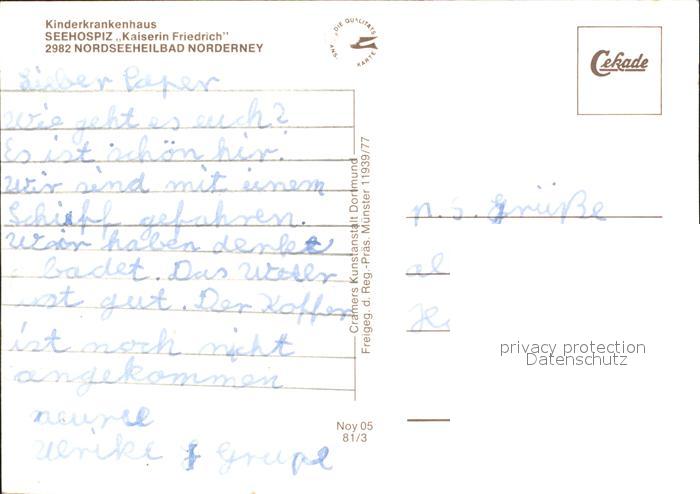 Kinderkrankenhaus
SEEHOSPIZ „Kaiserin Friedrich"
2982 NORDSEEHEILBAD NORDERNEY
DIE QUALITÄTS
ANS-KARTE
Cekade
Lieber Paper
Wie geht es euch?
Es ist schön hir.
Wir sind mit einem
Schiff gefahren.
Wir haben
badet. Das Weter
ist gut. Der Koffer
ist noch nicht
angekommen
Ulrike Grupe
Cramers Kunstanstalt Dortmund
Freigeg. d. Reg.-Präs. Münster 11939/77
Noy 05
81/3
p. s. grüße
al
privacy protection
Datenschutz